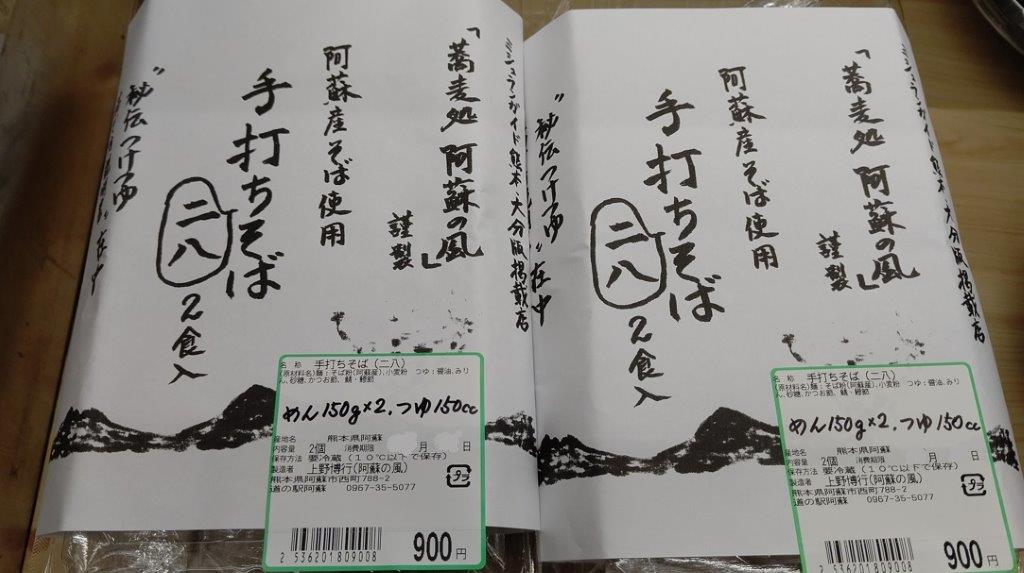 ミシュランガイド熊本・大分版掲載店
「蕎麦処 阿蘇の風」
謹製
阿蘇産そば使用
手打ちそば
二八
2食入
"秘伝つけつゆ"在中
名 称 手打ちそば(二八)
(原材料名)麺:そば粉(阿蘇産)、小麦粉 つゆ:醤油、みり
ん、砂糖、かつお節、鯖・鰹節
めん150g×2.つゆ150cc
産地名 熊本県阿蘇
内容量 2個 消費期限 月 日
保存方法 要冷蔵(10℃以下で保存)
製造者 上野博行(阿蘇の風)
熊本県阿蘇市西町788-2
道の駅阿蘇 0967-35-5077
2 536201809008
900円
ミシュランガイド熊本・大分版掲載店
「蕎麦処 阿蘇の風」
謹製
阿蘇産そば使用
手打ちそば
二八
2食入
"秘伝つけつゆ"在中
名 称 手打ちそば(二八)
(原材料名)麺:そば粉(阿蘇産)、小麦粉 つゆ:醤油、みり
ん、砂糖、かつお節、鯖・鰹節
めん150g×2.つゆ150cc
産地名 熊本県阿蘇
内容量 2個 消費期限 月 日
保存方法 要冷蔵(10℃以下で保存)
製造者 上野博行(阿蘇の風)
熊本県阿蘇市西町788-2
道の駅阿蘇 0967-35-5077
2 536201809008
900円